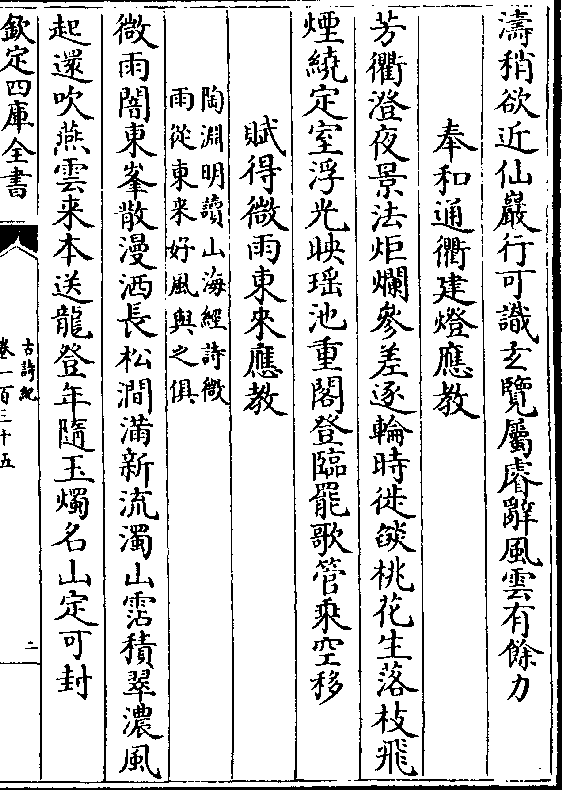 濤稍欲近仙巖行可識玄覽屬睿辭風雲有餘力
奉和通衢建燈應教
芳衢澄夜景法炬爛參差逐輪時徙燄桃花生落枝飛
煙繞定室浮光映瑶池重閣登臨罷歌管乘空移
賦得微雨東來應教
陶淵明讀山海經詩微
雨從東来好風與之俱
微雨闇東峯散漫洒長松澗滿新流濁山霑積翠濃風
起還吹燕雲来本送龍登年隨玉燭名山定可封
欽定四庫全書
古詩紀
卷一百三十五
二